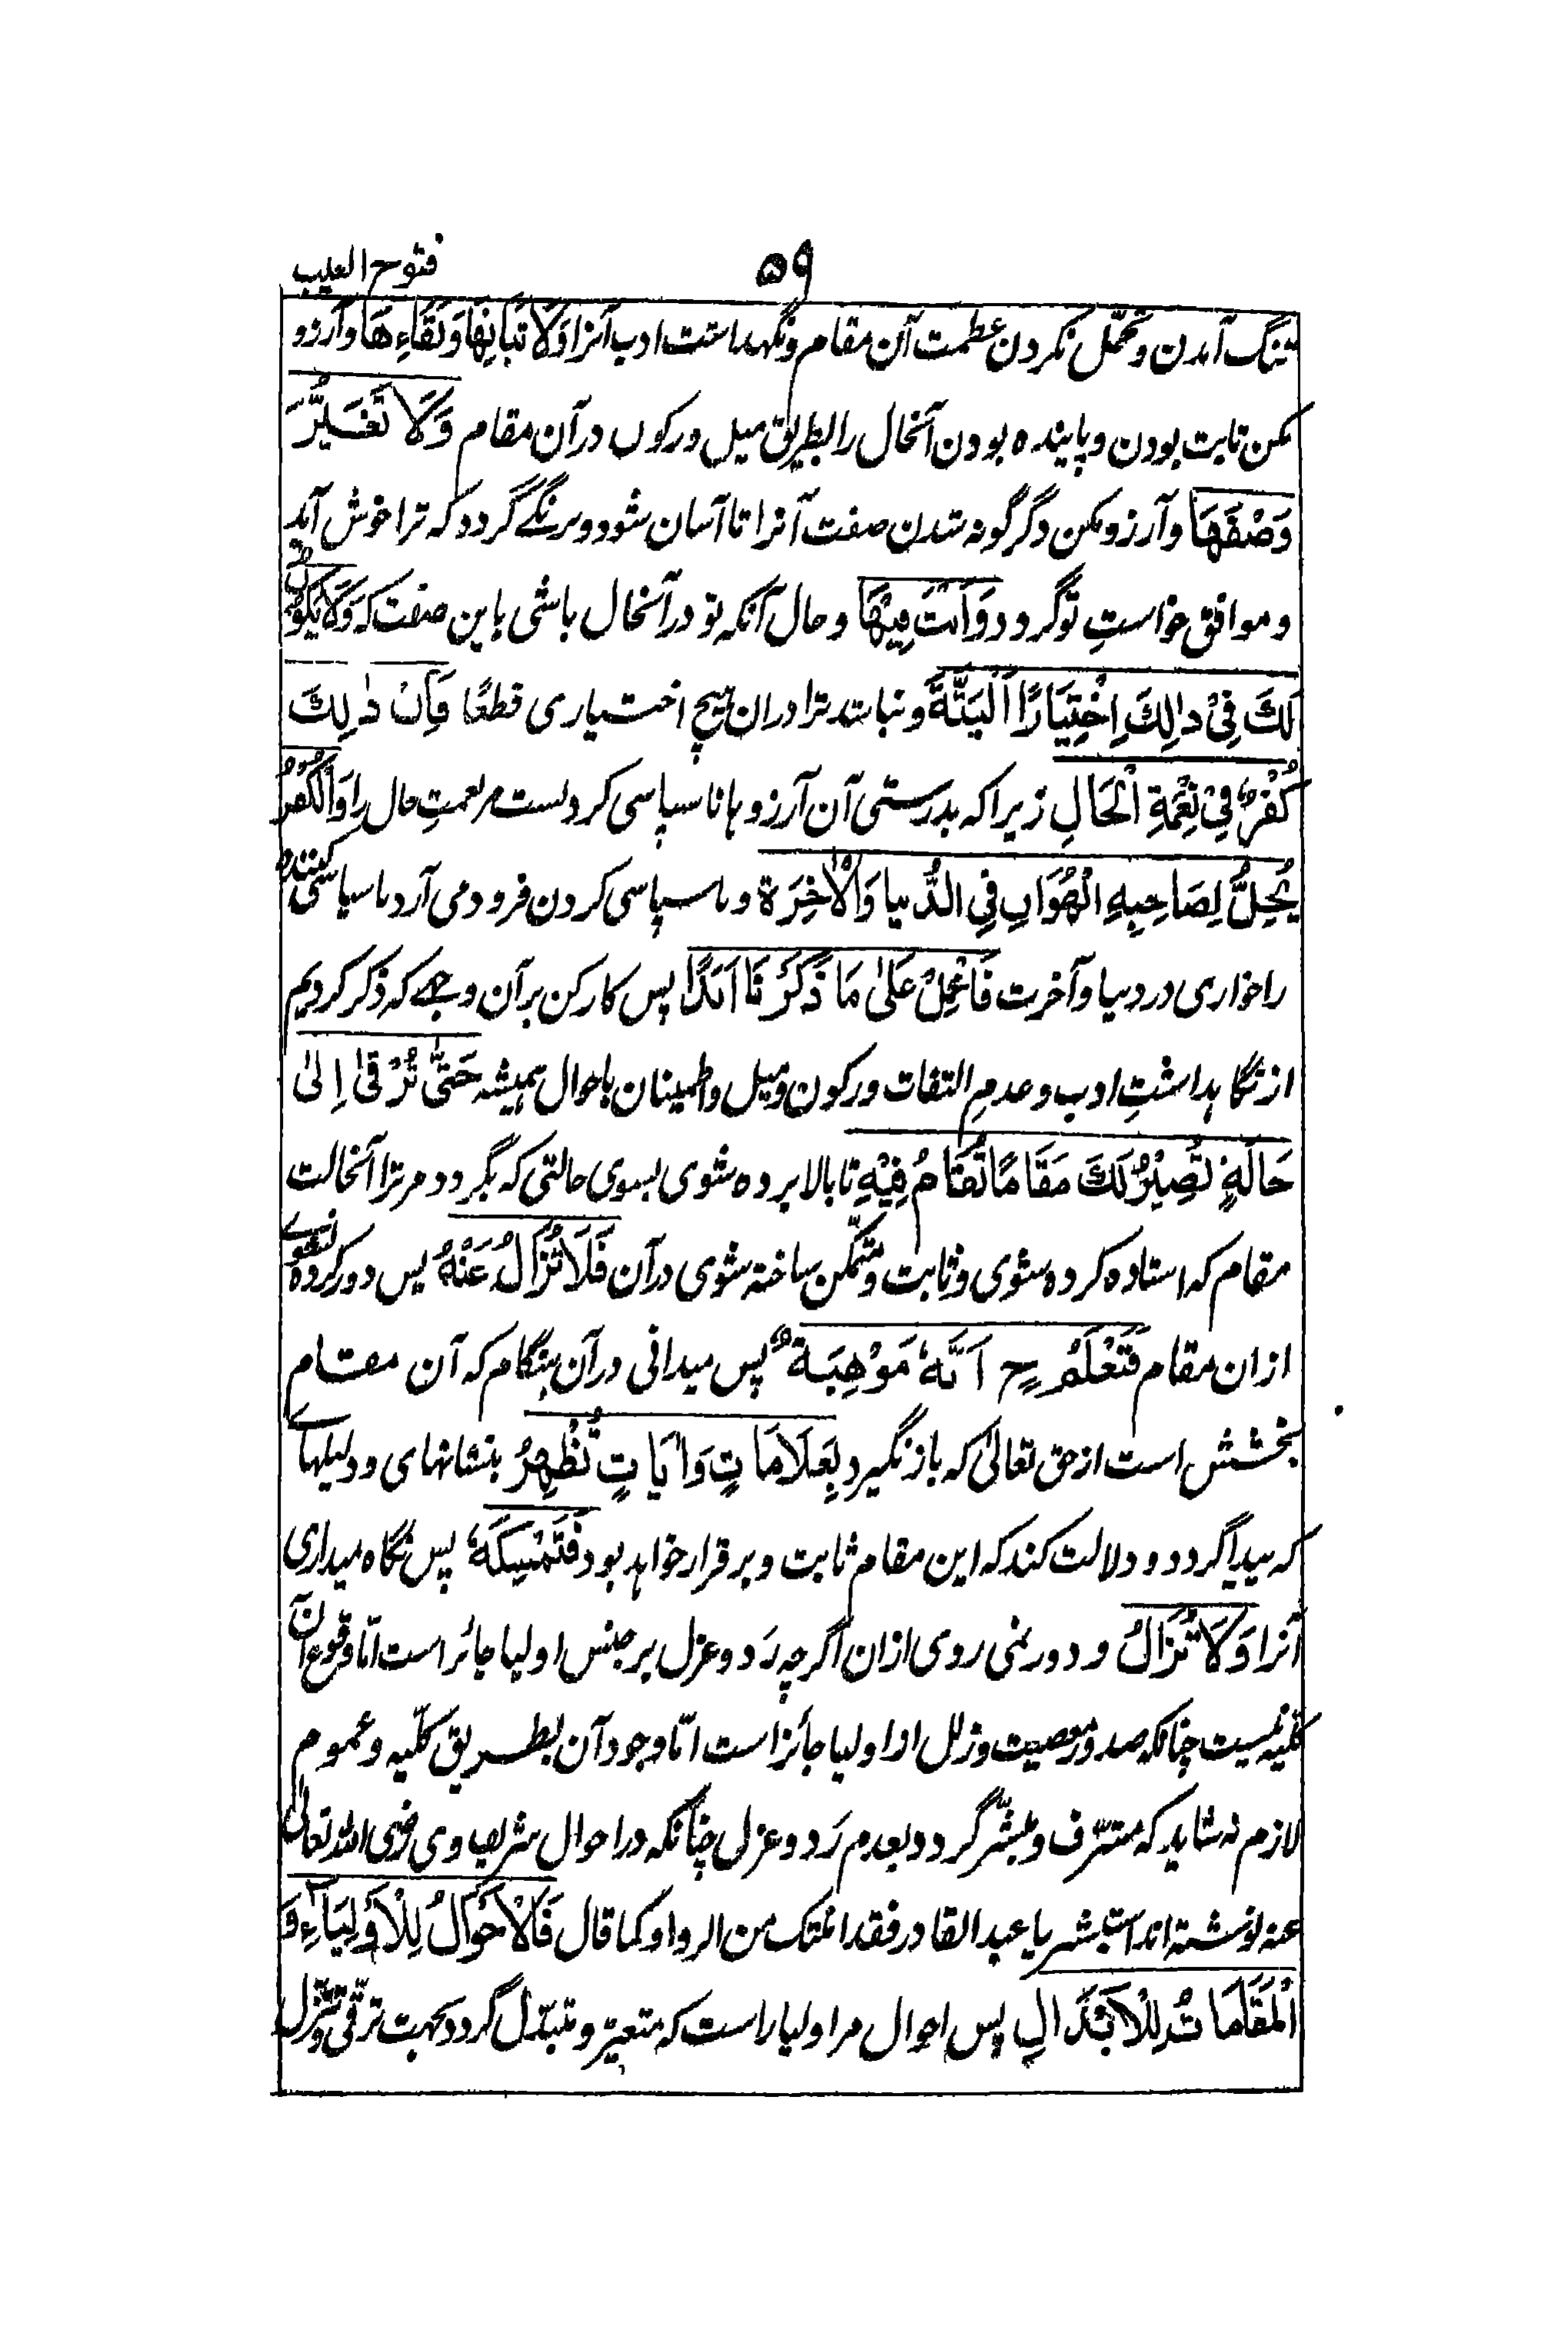 ۵۹ فتوح الغیب
تنگ آمدن و تحمّل نکردن عظمت آن مقام و نگهداشت ادب آنرا وَلَا ثَبَاتِهَا وَبَقَاءِ هَا و آرزو
مکن ثابت بودن و پاینده بودن آنحال را بطریق میل و رکون در آن مقام وَلَا تَغَيُّرَ
وَصْفِهَا و آرزو مکن دگرگونه شدن صفت آنرا تا آسان شود و برنگے گردد که ترا خوش آید
و موافق خواستِ تو گردد وَاَنْتَ فِيْهَا و حال آنکه تو در آنحال باشی باین صفت که وَلَا يَكُوْنُ
لَكَ فِيْ ذٰلِكَ اِخْتِيَارًا اَلْبَتَّةَ و نباشد ترا دران هیچ اختیاری قطعًا فَاِنَّ ذٰلِكَ
كُفْرٌ فِيْ نِعْمَةِ الْحَالِ زیرا که بدرستی آن آرزوها ناسپاسی کردنست مر نعمتِ حال را وَالْكُفْرُ
يُحِلُّ لِصَاحِبِهِ الْهَوَانَ فِي الدُّنيا وَالْاٰخِرَة و ناسپاسی کردن فرود می آرد ناسپاسی کننده
را خواری در دنیا و آخرت فَاعْمِلْ عَلىٰ مَا ذَكَرْنَا اَبَدًا پس کار کن بر آن وجهے که ذکر کردیم
از نگاهداشتِ ادب و عدمِ التفات و رکون و میل و اطمینان باحوال همیشه حَتّٰى تُرْقىٰ اِلىٰ
حَالَةٍ تُصِيْرُ لَكَ مَقَامًا تُقَامُ فِيْهِ تا بالا برده شوی بسوی حالتی که بگردد مر ترا آنحالت
مقام که استاده کرده شوی و ثابت و متمکّن ساخته شوی در آن فَلَا تُزَالُ عَنْهُ پس دور کرده نشوے
ازان مقام فَتَعْلَمُ ح اَنَّهٗ مَوْهِبَةٌ پس میدانی در آن هنگام که آن مقام
بخشش است از حق تعالیٰ که باز نگیرد بِعَلَامَاتٍ وَاٰيَاتٍ تُظْهِرُ بنشانهای و دلیلهاے
که پیدا گردد و دلالت کند که این مقام ثابت و برقرار خواهد بود فَتُمْسِكُهٗ پس نگاه میداری
آنرا وَلَا تُزَالُ و دور نمی روی ازان اگرچه رَد و عزل بر جنس اولیا جائز است امّا وقوع آن
کلّیه نیست چنانکه صدور معصیت و زلل از اولیا جائز است امّا وجود آن بطریق کلّیه و عموم
لازم نه شاید که مشرّف و مبشّر گردد بعدم رَد و عزل چنانکه در احوال شریف وی رضی الله تعالیٰ
عنه نوشته اند استبشر یا عبد القادر فقد امنتک من الرد او کما قال فَالْاَحْوَالُ لِلْاَوْلِيَآءِ وَ
الْمَقَامَاتُ لِلْاَبْدَالِ پس احوال مر اولیا راست که متغیّر و متبدّل گردد بجهت ترقّی و تنزّل